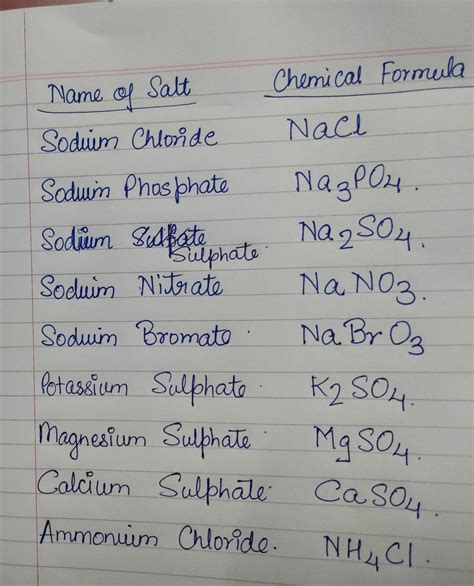 Name of Salt Chemical Formula
Sodium Chloride NaCl
Sodium Phosphate Na3PO4.
Sodium Sulphate Na2SO4.
Sodium Nitrate NaNO3.
Sodium Bromate NaBrO3
Potassium Sulphate. K2SO4.
Magnesium Sulphate. MgSO4.
Calcium Sulphate. CaSO4.
Ammonium Chloride. NH4Cl.